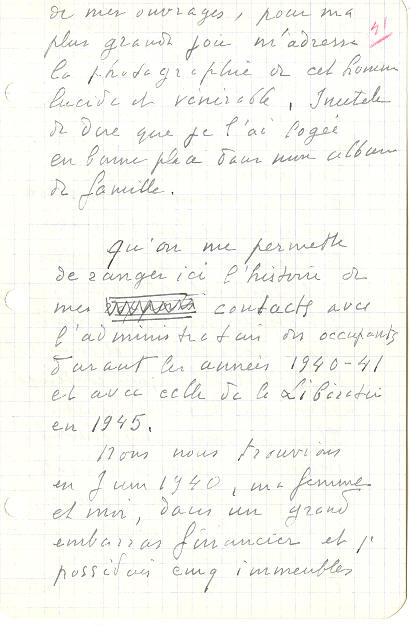 de mes ouvrages, pour ma
41
plus grande joie m'adressa
la photographie de cet homme
lucide et vénérable. Inutile
de dire que je l'ai logée
en bonne place dans mon album
de famille.
Qu'on me permette
de ranger ici l'histoire de
mes contacts avec
l'administration des occupants
durant les années 1940-41
et avec celle de la Libération
en 1945.
Nous nous trouvions
en Juin 1940, ma femme
et moi, dans un grand
embarras financier et j'
possédais cinq immeubles